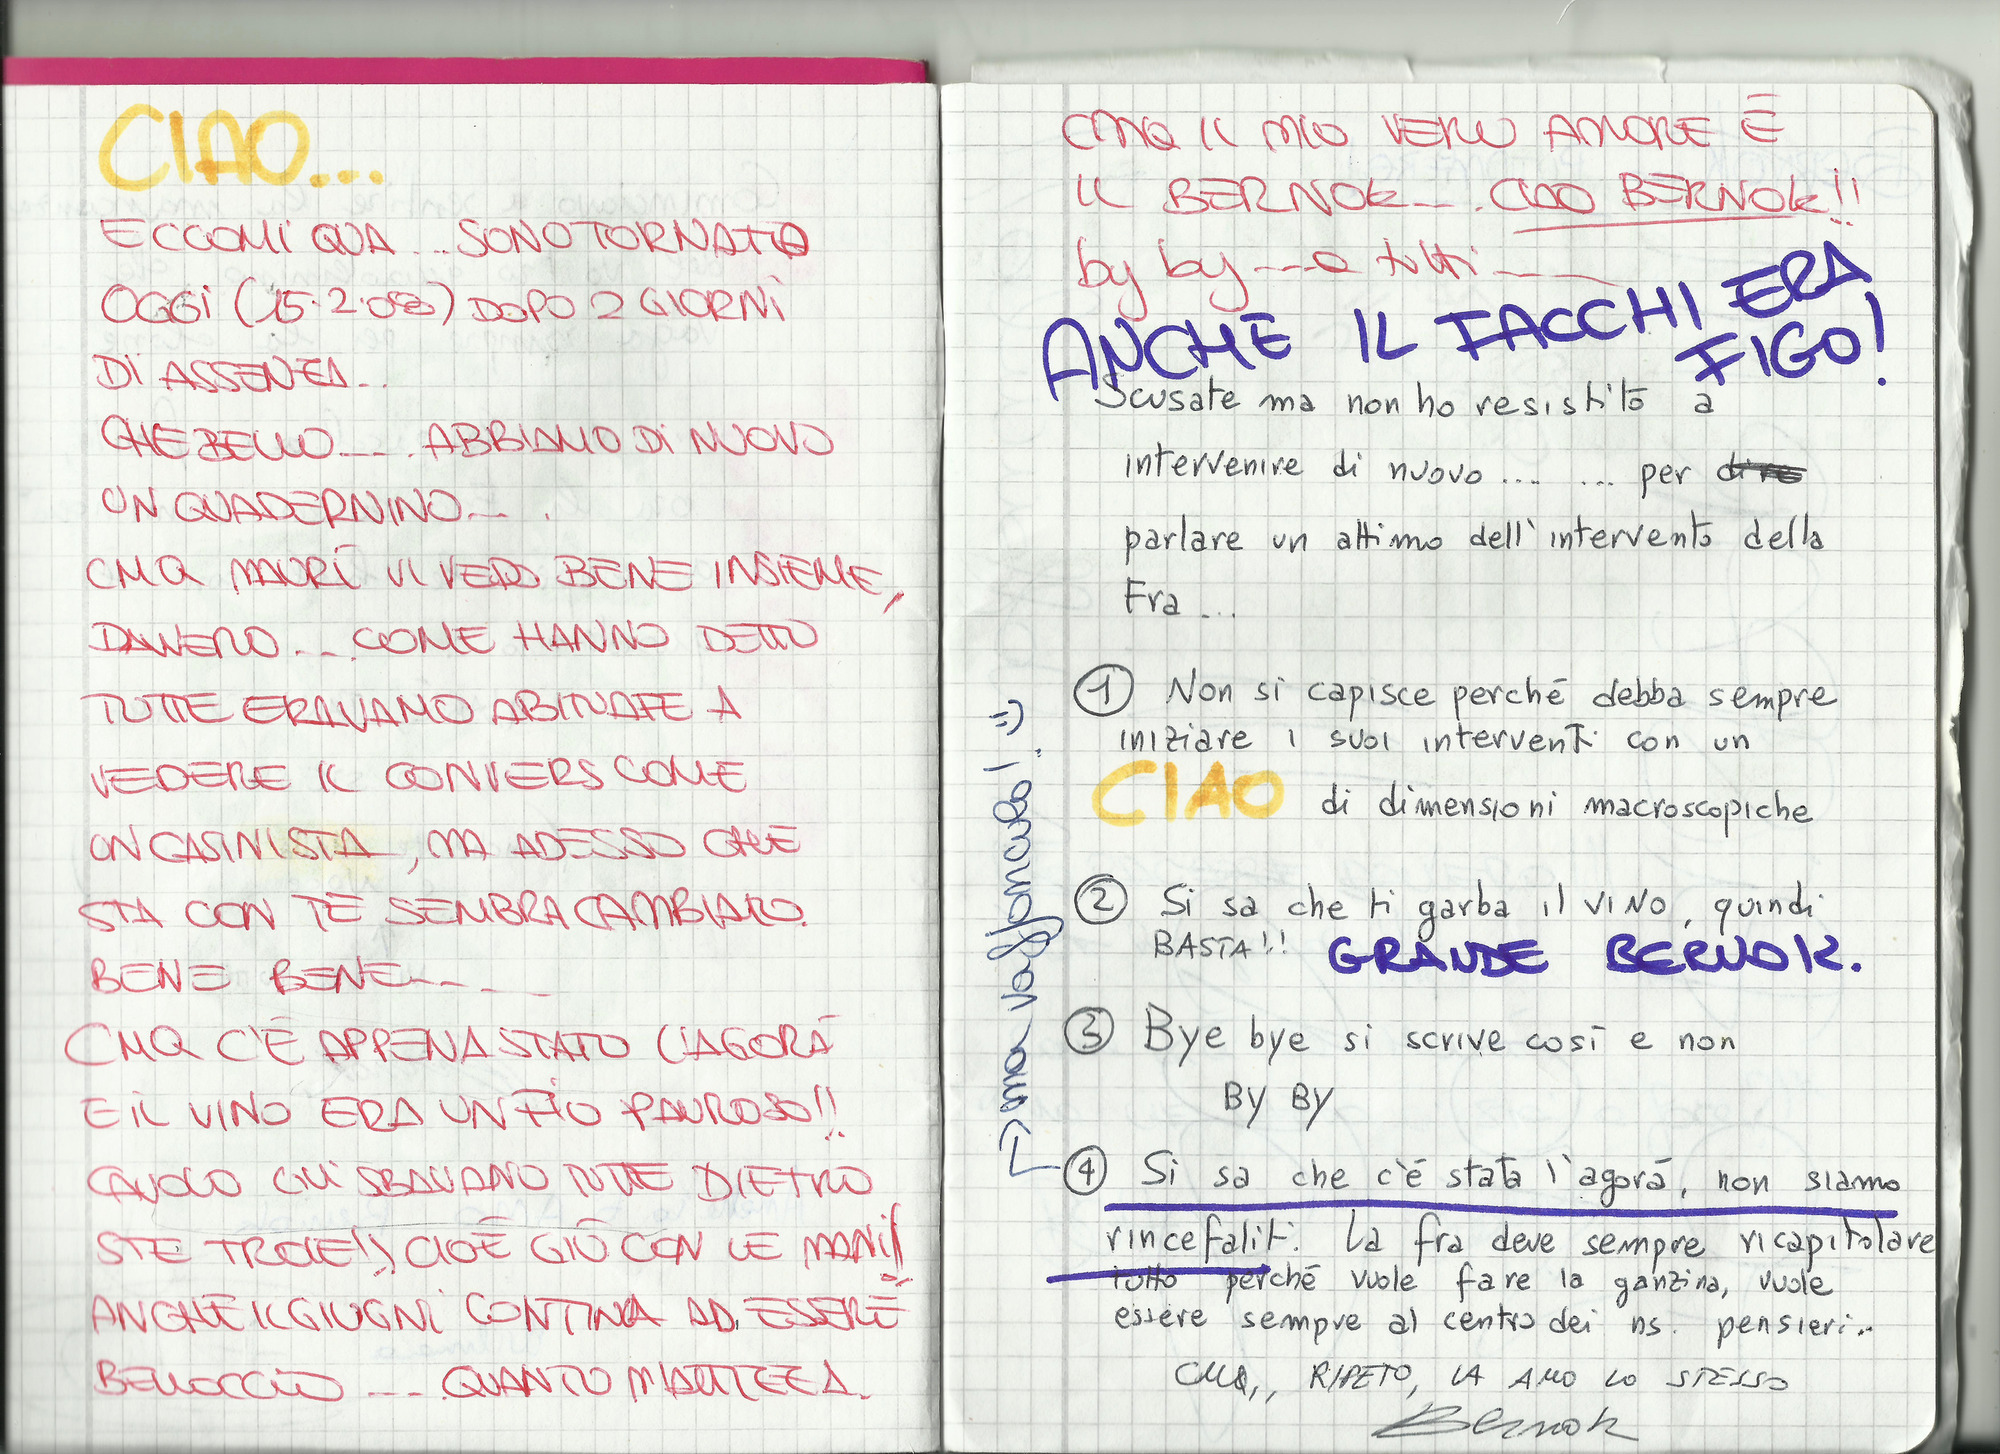 CIAO...
ECCOMI QUA... SONO TORNATA
OGGI (15.2.08) DOPO 2 GIORNI
DI ASSENZA..
CHE BELLO.... ABBIAMO DI NUOVO
UN QUADERNINO....
CMQ MAURI VI VEDO BENE INSIEME,
DAVVERO... COME HANNO DETTO
TUTTE ERAVAMO ABITUATE A
VEDERE IL CONVERS COME
UN CASINISTA, MA ADESSO CHE
STA CON TE SEMBRA CAMBIATO.
BENE BENE.....
CMQ C'È APPENA STATO L'AGORÀ
E IL VINO ERA UN FIO PAUROSO!!
CAVOLO GLI SBAVANO TUTTE DIETRO
STE TROIE!! CIOÈ GIÙ CON LE MANI!!
ANCHE IL GIUGNI CONTINA AD ESSERE
BELLOCCIO ... QUANTO MATTEZZA.
CMQ IL MIO VERO AMORE È
IL BERNOK.... CIAO BERNOK!!
by by ... a tutti ...
ANCHE IL FACCHI ERA
FIGO!
Scusate ma non ho resistito a
intervenire di nuovo .... ... per dire
parlare un attimo dell'intervento della
Fra ...
① Non si capisce perché debba sempre
iniziare i suoi interventi con un
CIAO di dimensioni macroscopiche
② Si sa che ti garba il VINO, quindi
BASTA!! GRANDE BERNOK.
③ Bye bye si scrive così e non
BY BY
④ Si sa che c'è stata l'agorá, non siamo
rincefaliti. La fra deve sempre ricapitolare
tutto perché vuole fare la ganzina, vuole
essere sempre al centro dei ns. pensieri..
CMQ,, RIPETO, LA AMO LO STESSO
Bernok
ma vaffanculo! =)